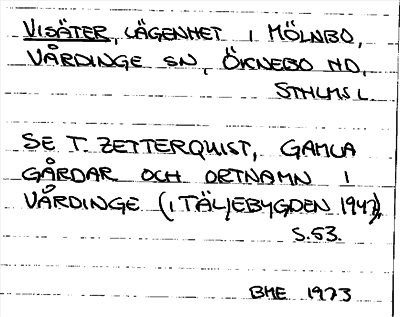 VISÄTER, LÄGENHET I MÖLNBO,
VÅRDINGE SN, ÖKNEBO HD,
STHLMS L
SE T. ZETTERQUIST, GAMLA
GÅRDAR OCH ORTNAMN I
VÅRDINGE (I TÄLJEBYGDEN 1947),
S.53.
BHE 1973